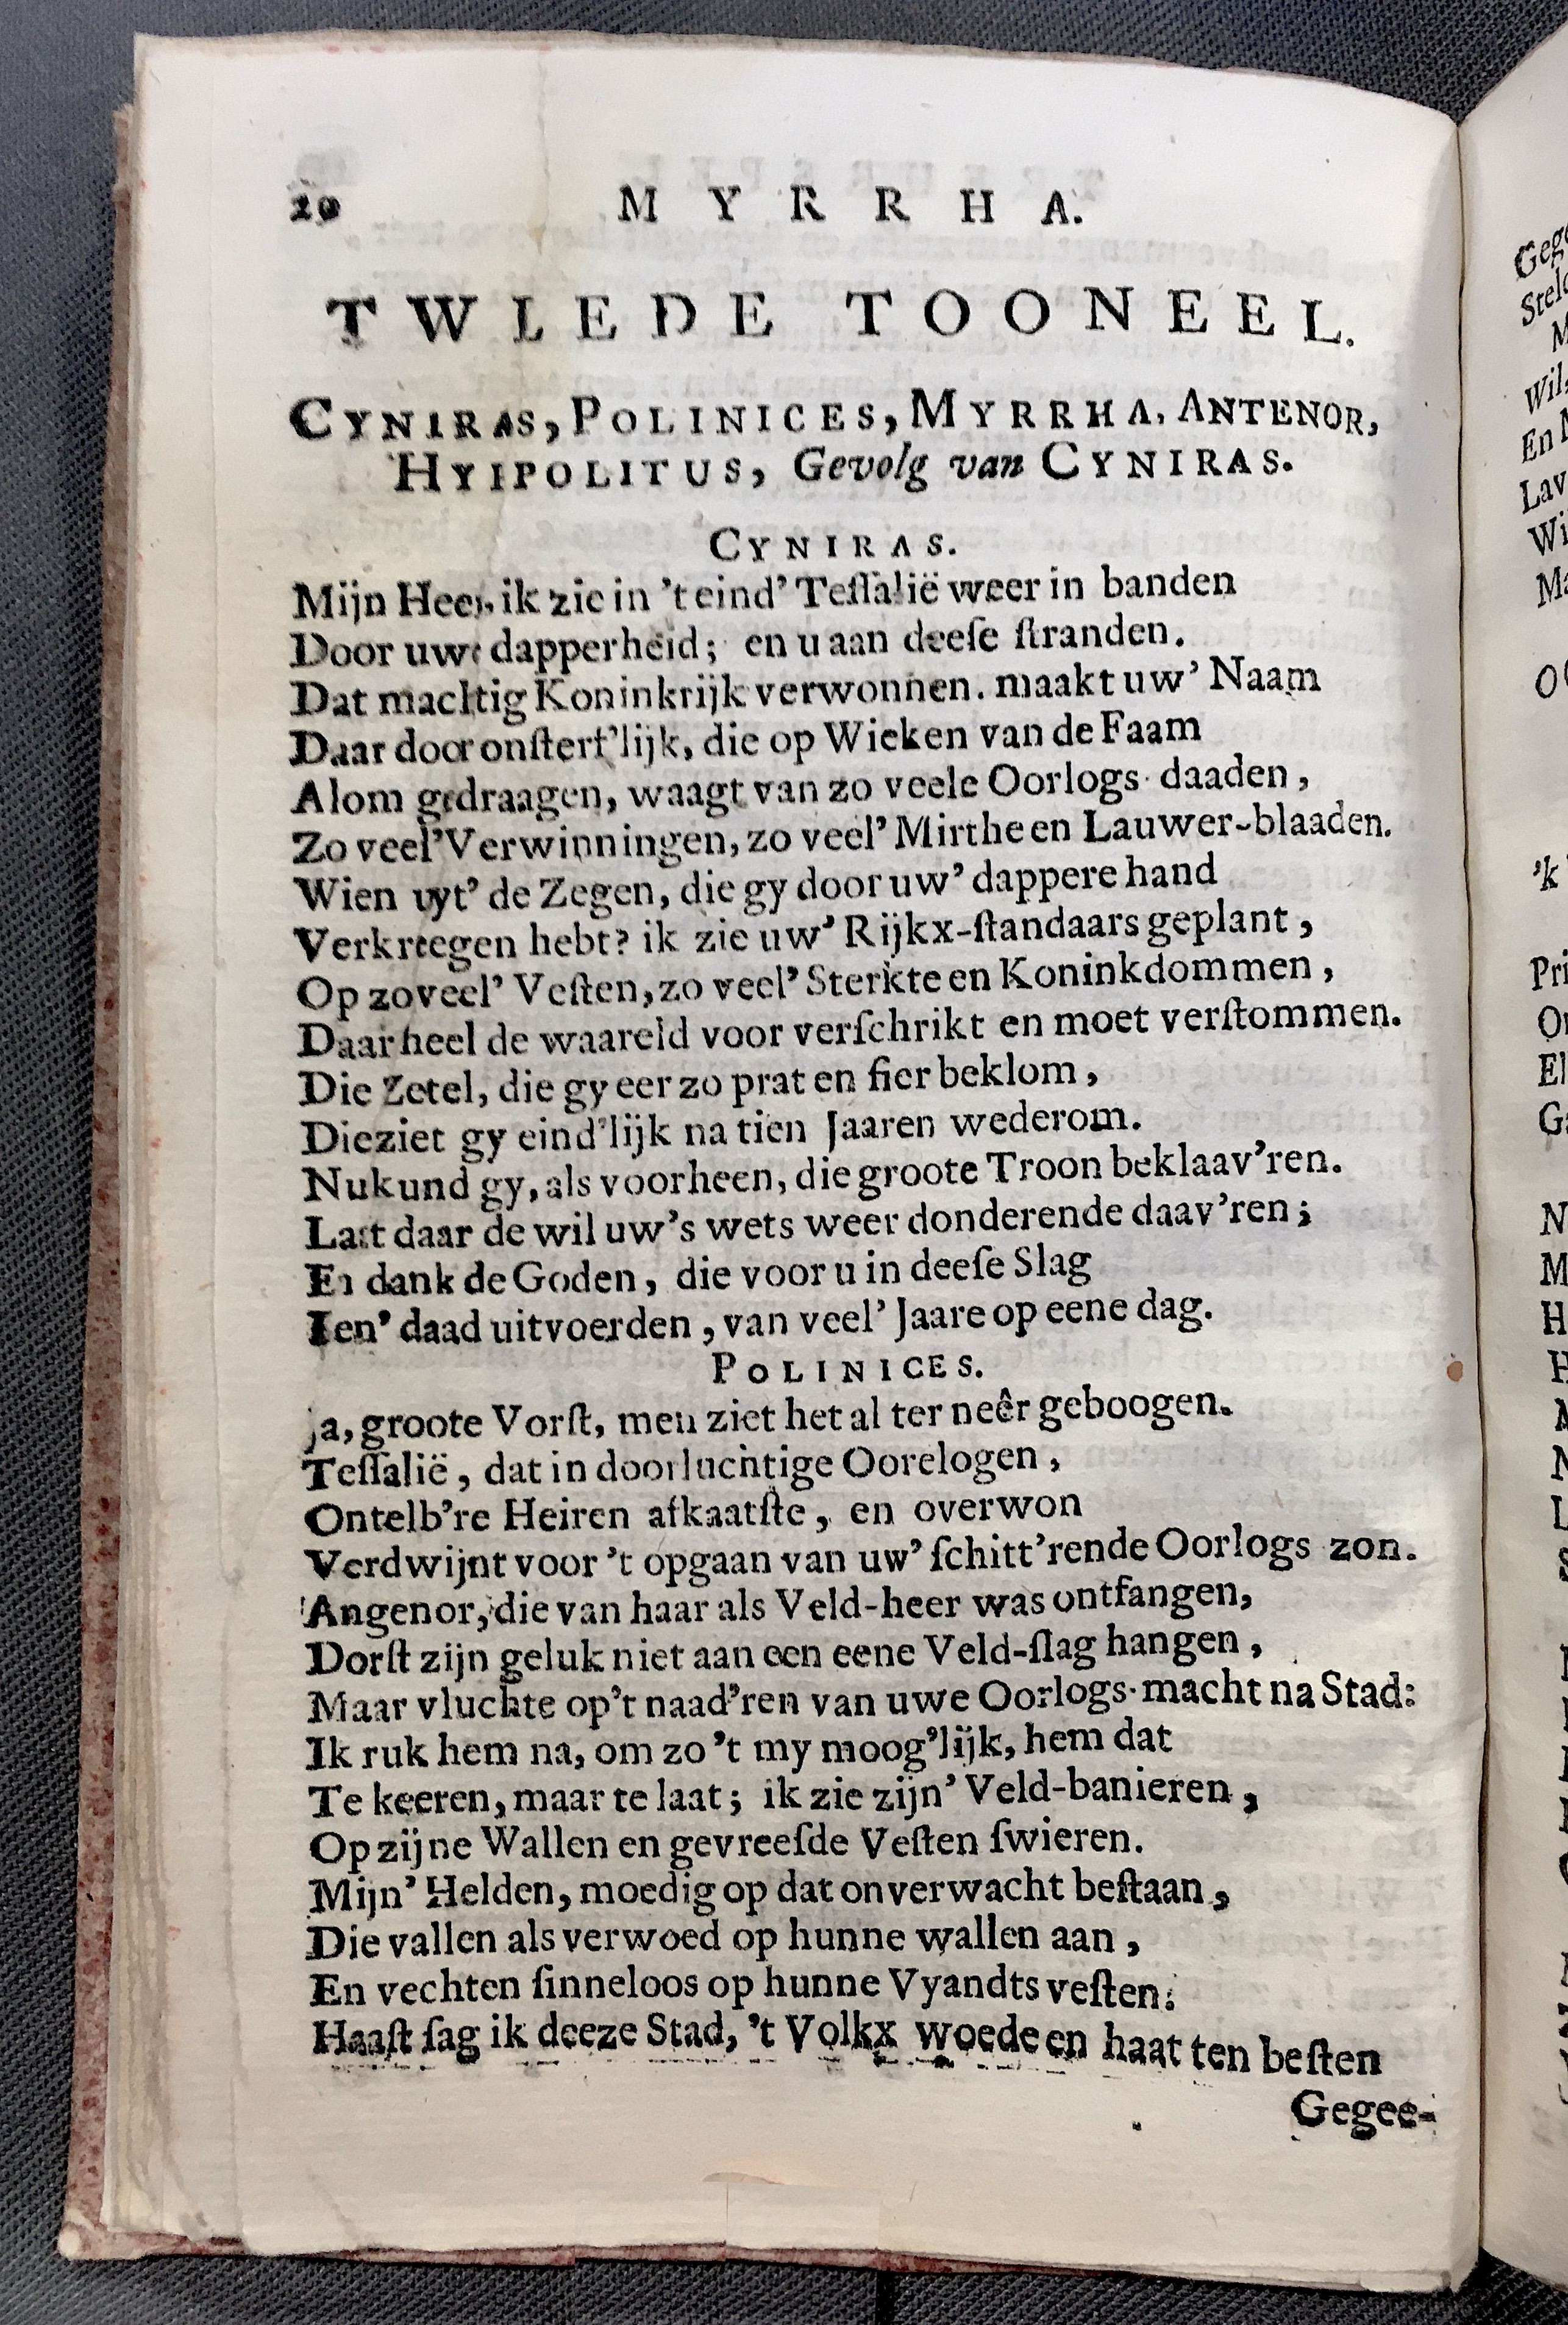 20 MYRRHA.
TWLEDE TOONEEL.
CYNIRAS, POLINICES, MYRRHA, ANTENOR,
HYIPOLITUS, Gevolg van CYNIRAS.
CYNIRAS.
Mijn Heer, ik zie in 't eind' Teſſalië weer in banden
Door uwe dapperheid; en u aan deeſe ſtranden.
Dat machtig Koninkrijk verwonnen. maakt uw' Naam
Daar door onſterf'lijk, die op Wieken van de Faam
Alom gedraagen, waagt van zo veele Oorlogs-daaden,
Zo veel' Verwinningen, zo veel' Mirthe en Lauwer-blaaden.
Wien uyt' de Zegen, die gy door uw' dappere hand
Verkreegen hebt? ik zie uw' Rijkx-ſtandaars geplant,
Op zoveel' Veſten, zo veel' Sterkte en Koninkdommen,
Daar heel de waareld voor verſchrikt en moet verſtommen.
Die Zetel, die gy eer zo prat en fier beklom,
Die ziet gy eind'lijk na tien Jaaren wederom.
Nu kund gy, als voorheen, die groote Troon beklaav'ren.
Laat daar de wil uw's wets weer donderende daav'ren;
En dank de Goden, die voor u in deeſe Slag
Een' daad uitvoerden, van veel' Jaare op eene dag.
POLINICES.
Ja, groote Vorſt, men ziet het al ter neêr geboogen.
Teſſalië, dat in doorluchtige Oorelogen,
Ontelb're Heiren afkaatſte, en overwon
Verdwijnt voor 't opgaan van uw' ſchitt'rende Oorlogs zon.
Angenor, die van haar als Veld-heer was ontfangen,
Dorſt zijn geluk niet aan een eene Veld-ſlag hangen,
Maar vluchte op't naad'ren van uwe Oorlogs-macht na Stad:
Ik ruk hem na, om zo 't my moog'lijk, hem dat
Te keeren, maar te laat; ik zie zijn' Veld-banieren,
Op zijne Wallen en gevreeſde Veſten ſwieren.
Mijn' Helden, moedig op dat onverwacht beſtaan,
Die vallen als verwoed op hunne wallen aan,
En vechten ſinneloos op hunne Vyandts veſten:
Haaſt ſag ik deeze Stad, 't Volkx woede en haat ten beſten
Gegee-